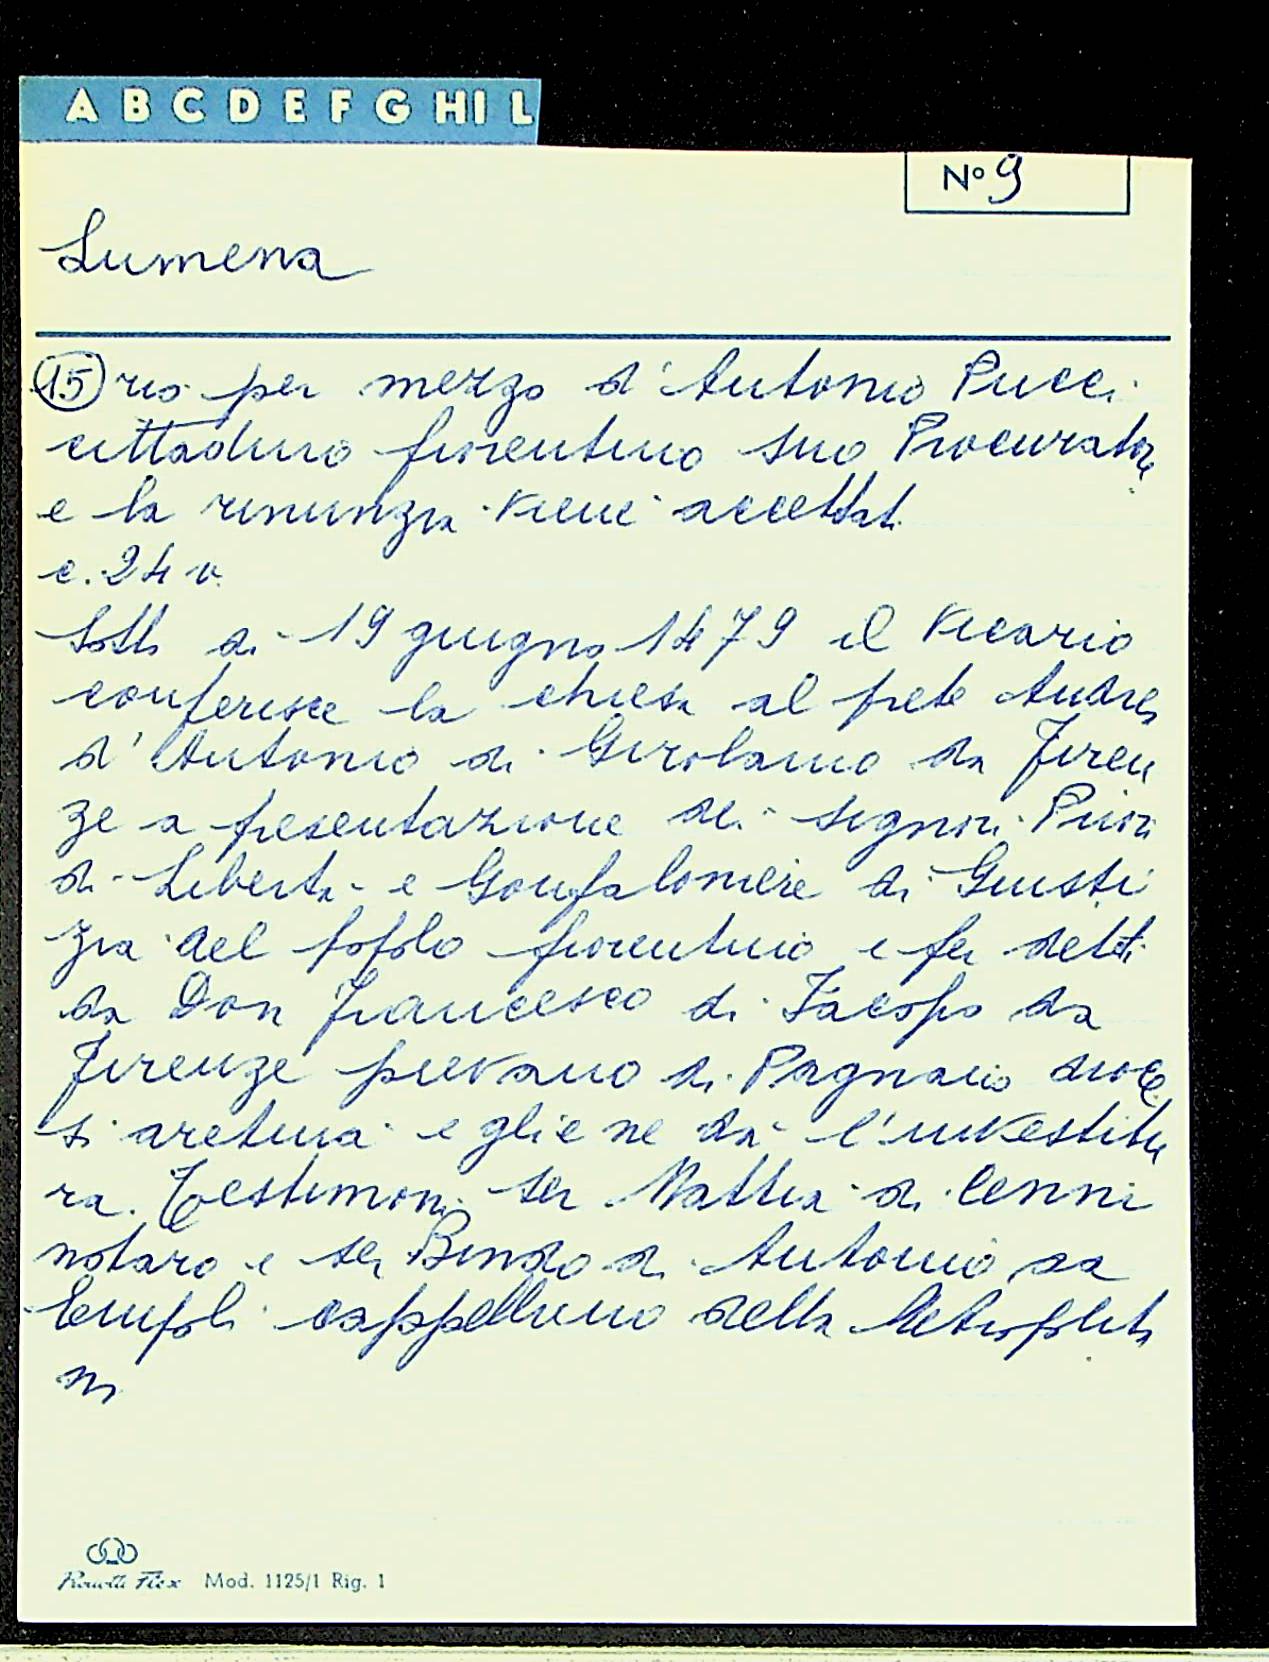 A B C D E F G HI L
N° 9
Lumena
15 rio per mezzo d'Antonio Pucci
cittadino fiorentino suo Procuratore
e la rinunzia viene accettat.
c. 24 v.
Sotto di 19 giugno 1479 il Vicario
conferisce la chiesa al prete Andrea
d'Antonio di Girolamo da Firen
ze a presentazione dei signori Priori
di Libertà e Gonfaloniere di Giusti
zia del popolo fiorentino e per detti
da Don Francesco di Jacopo da
Firenze pievano di Pagnano dioce
si aretina e gliene dà l'investitu
ra. Testimoni ser Mattia di Cenni
notaro e ser Bindo di Antonio da
Empoli cappellano della Metropolita
na
Mod. 1125/1 Rig. 1